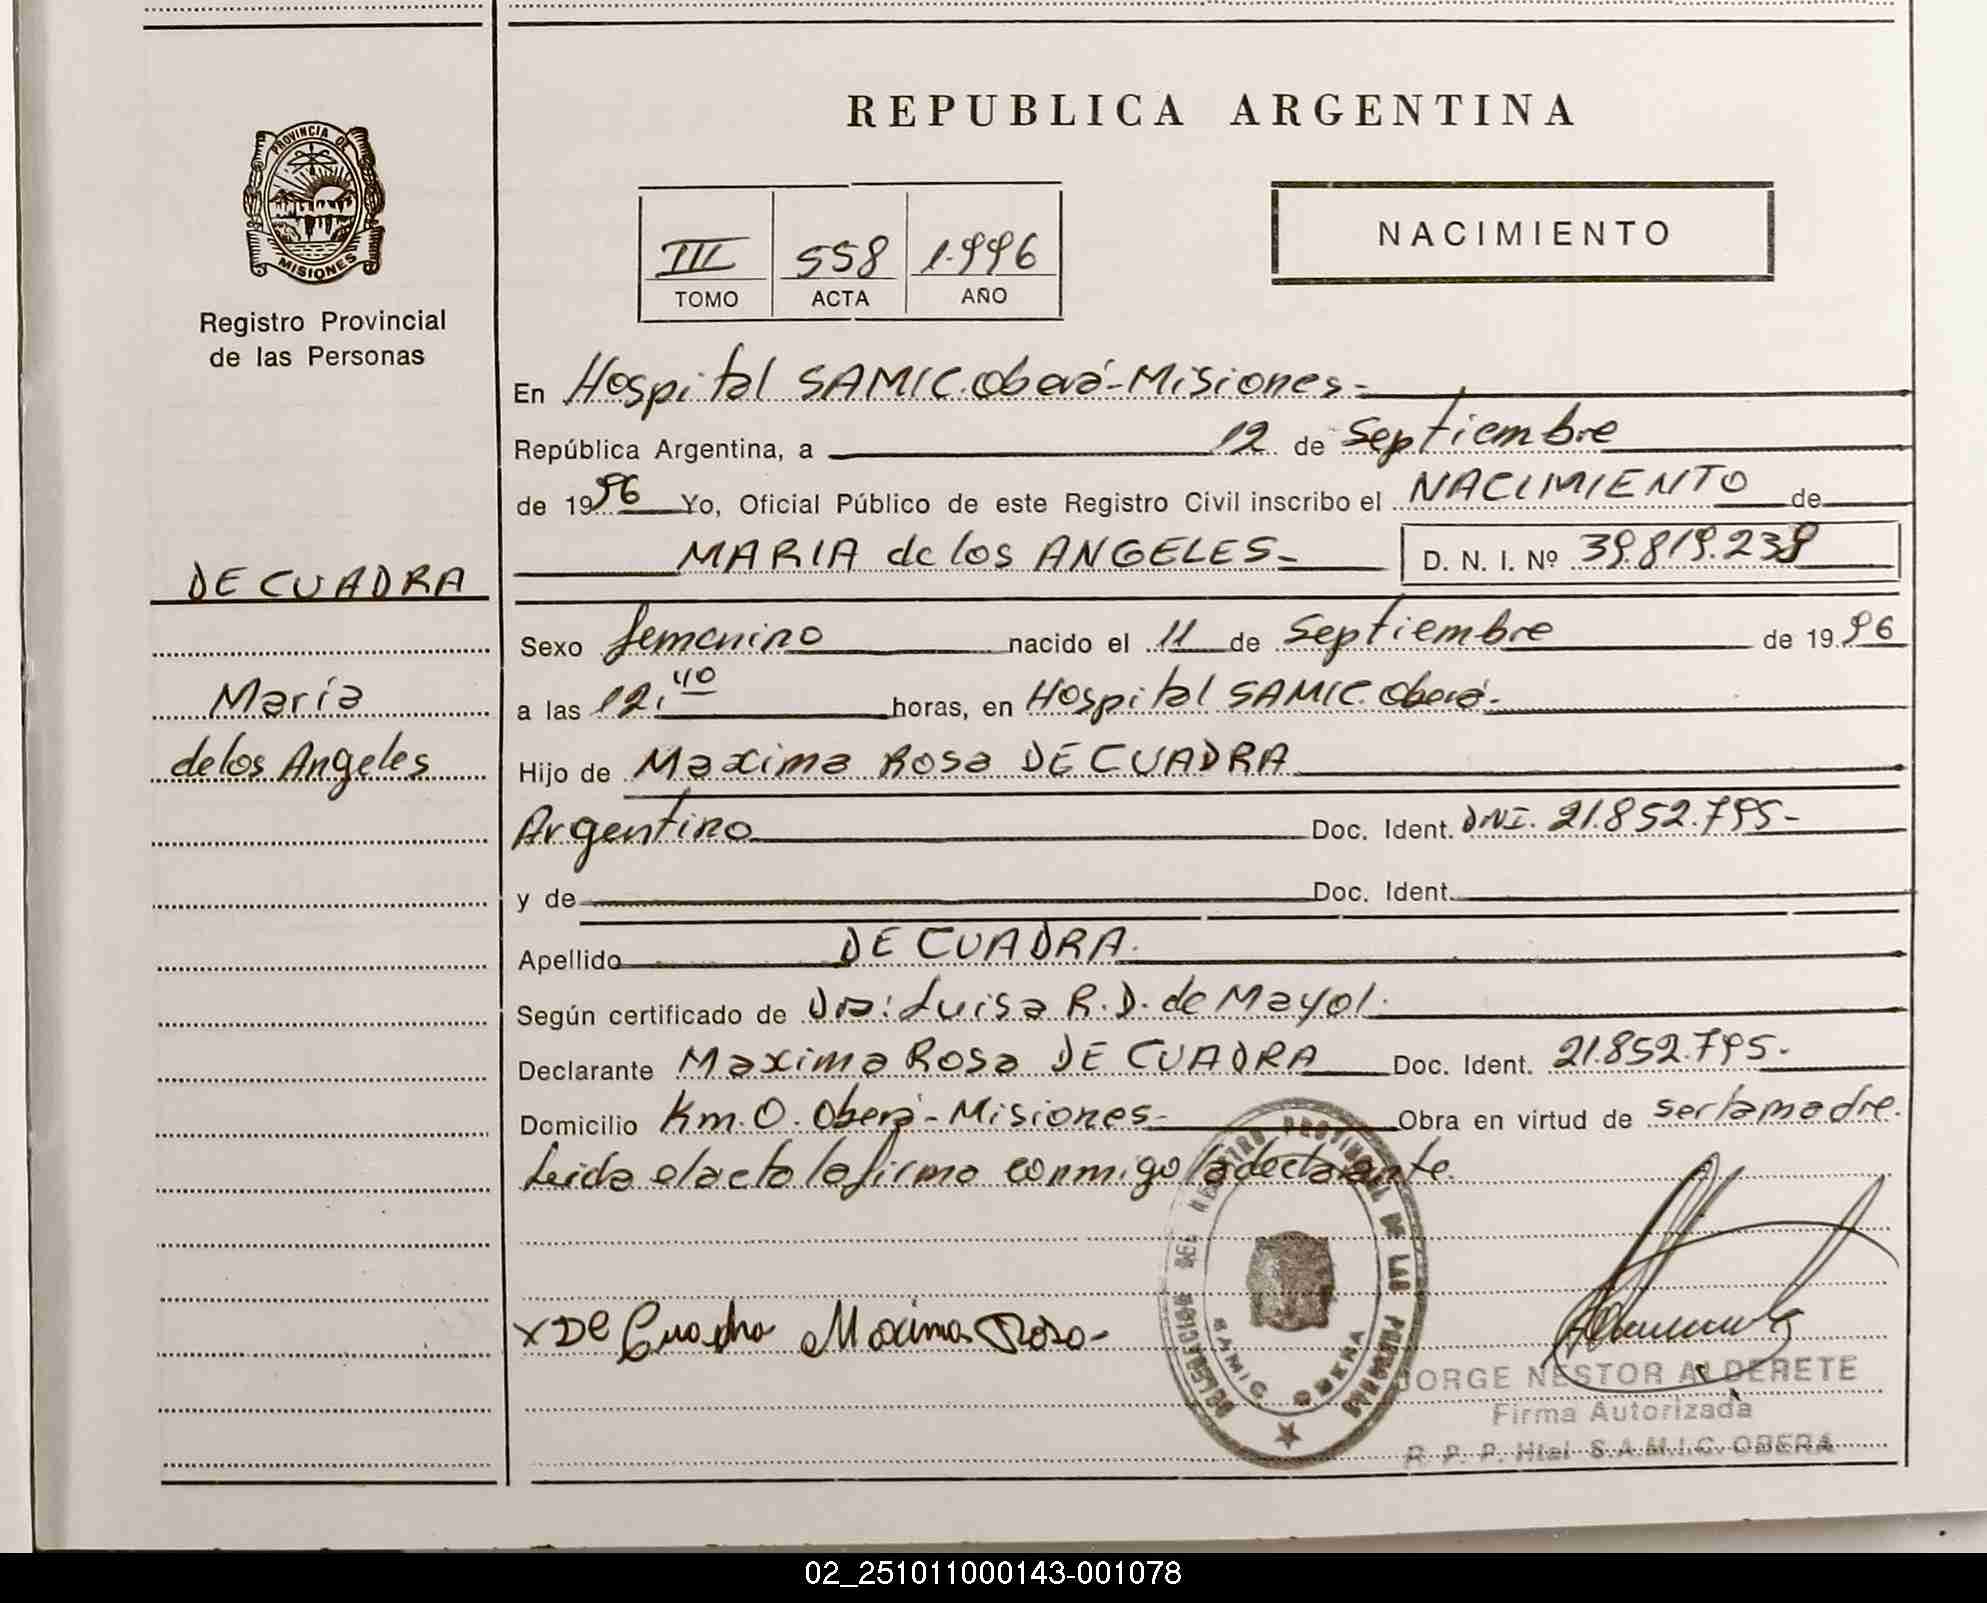 REPUBLICA ARGENTINA
PROVINCIA DE
MISIONES
Registro Provincial
de las Personas
III 558 1.996
TOMO ACTA AÑO
NACIMIENTO
En Hospital SAMIC. Oberá - Misiones -
República Argentina, a 12 de Septiembre
de 1996 Yo, Oficial Público de este Registro Civil inscribo el NACIMIENTO de
MARIA de los ANGELES - D. N. I. Nº 39.819.239
DE CUADRA
María
de los Angeles
Sexo femenino nacido el 11 de Septiembre de 1996
a las 12,40 horas, en Hospital SAMIC. Oberá -
Hijo de Maxima Rosa DE CUADRA
Argentino Doc. Ident. DNI. 21.852.795 -
y de Doc. Ident.
Apellido DE CUADRA.
Según certificado de Dra: Luisa R. D. de Mayol.
Declarante Maxima Rosa DE CUADRA Doc. Ident. 21.852.795 -
Domicilio Km. 0. Oberá - Misiones - Obra en virtud de ser la madre.
Leida el acta la firma conmigo la declarante.
x De Cuadra Maxima Rosa -
DELEGACION DEL REGISTRO PROVINCIAL DE LAS PERSONAS
SAMIC. OBERA
JORGE NESTOR ALDERETE
Firma Autorizada
R. P. P. Htal S.A.M.I.C. OBERA
02_251011000143-001078